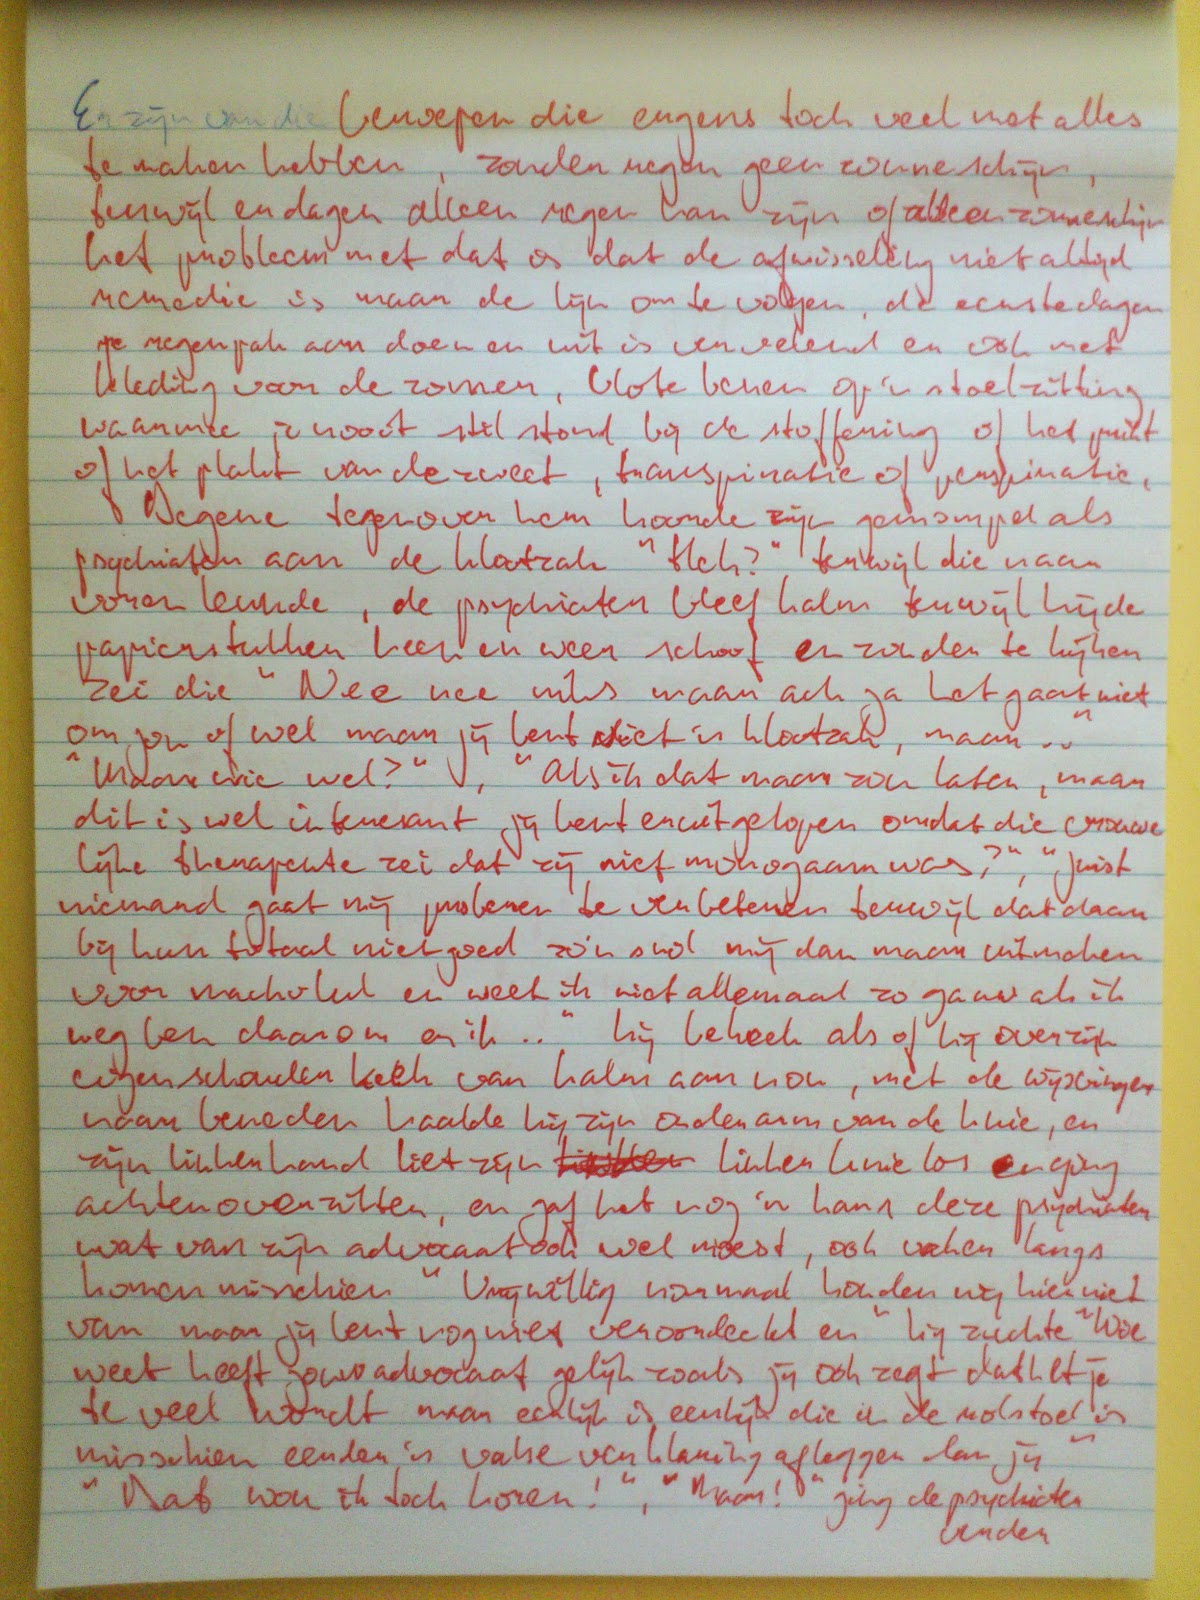 Er zijn van die beroepen die ergens toch veel met alles
te maken hebben, zonder regen geen zonneschijn,
terwijl er dagen alleen regen kan zijn of alleen zonneschijn
het probleem met dat is dat de afwisseling niet altijd
remedie is maar de lijn om te volgen, de eerste dagen
je regenpak aan doen en uit is vervelend en ook met
kleding voor de zomer, blote benen op 'n stoelzitting
waarmee je nooit stil stond bij de stoffering of het prikt
of het plakt van de zweet, transpiratie of perspiratie,
Degene tegenover hem hoorde zijn gemompel als
psychiater aan de klootzak "Heh?" terwijl die naar
voren leunde, de psychiater bleef kalm terwijl hij de
papierstukken heen en weer schoof en zonder te kijken
zei die "Nee nee niks maar ach ja het gaat niet
om jou of wel maar jij bent niet 'n klootzak, maar.."
"Maar wie wel?", "Als ik dat maar zou laten, maar
dit is wel interesant jij bent er uitgelopen omdat die vrouwe
lijke therapeute zei dat zij niet monogaam was?", "Juist
niemand gaat mij proberen te verbeteren terwijl dat daar
bij hun totaal niet goed zo'n mij dan maar uitmaken
voor macholul en weet ik niet allemaal zo gauw als ik
weg ben daarom en ik .." hij bekeek als of hij over zijn
eigen schouder keek van kalm aan nou, met de wijsvinger
naar beneden haalde hij zijn onderarm van de knie, en
zijn linkerhand liet zijn linker knie los en ging
achterover zitten, en gaf het nog 'n kans deze psychiater
wat van zijn advocaat ook wel moest, ook vaker langs
komen misschien "Vrijwillig normaal houden wij hier niet
van maar jij bent nog niet veroordeeld en" hij zuchtte "Wie
weet heeft jouw advocaat gelijk zoals jij ook zegt dat het je
te veel wordt maar eerlijk is eerlijk die in de rolstoel is
misschien eerder 'n valse verklaring afleggen dan jij"
"Dat wou ik toch horen!", "Maar!" ging de psychiater
verder